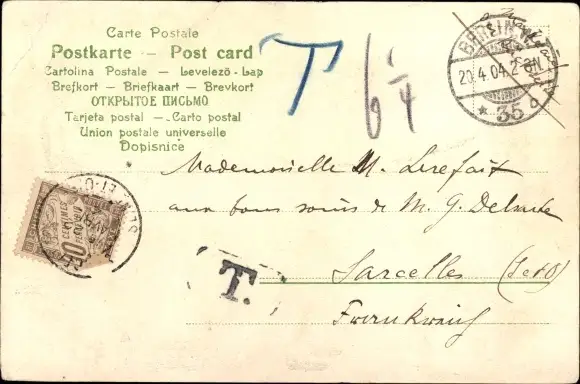 Carte Postale
Postkarte – Post card
Cartolina Postale – Levelező-Lap
Brefkort – Briefkaart – Brevkort
ОТКРЫТОЕ ПИСЬМО
Tarjeta postal – Carto postal
Union postale universelle
Dopisnice
T
6 1/4
20.4.04.2-3N.
* 35
Mademoiselle M. Lerefait
aux bons soins de M. G. Delsarte
Sarcelles (S et O)
T.
Frankreich